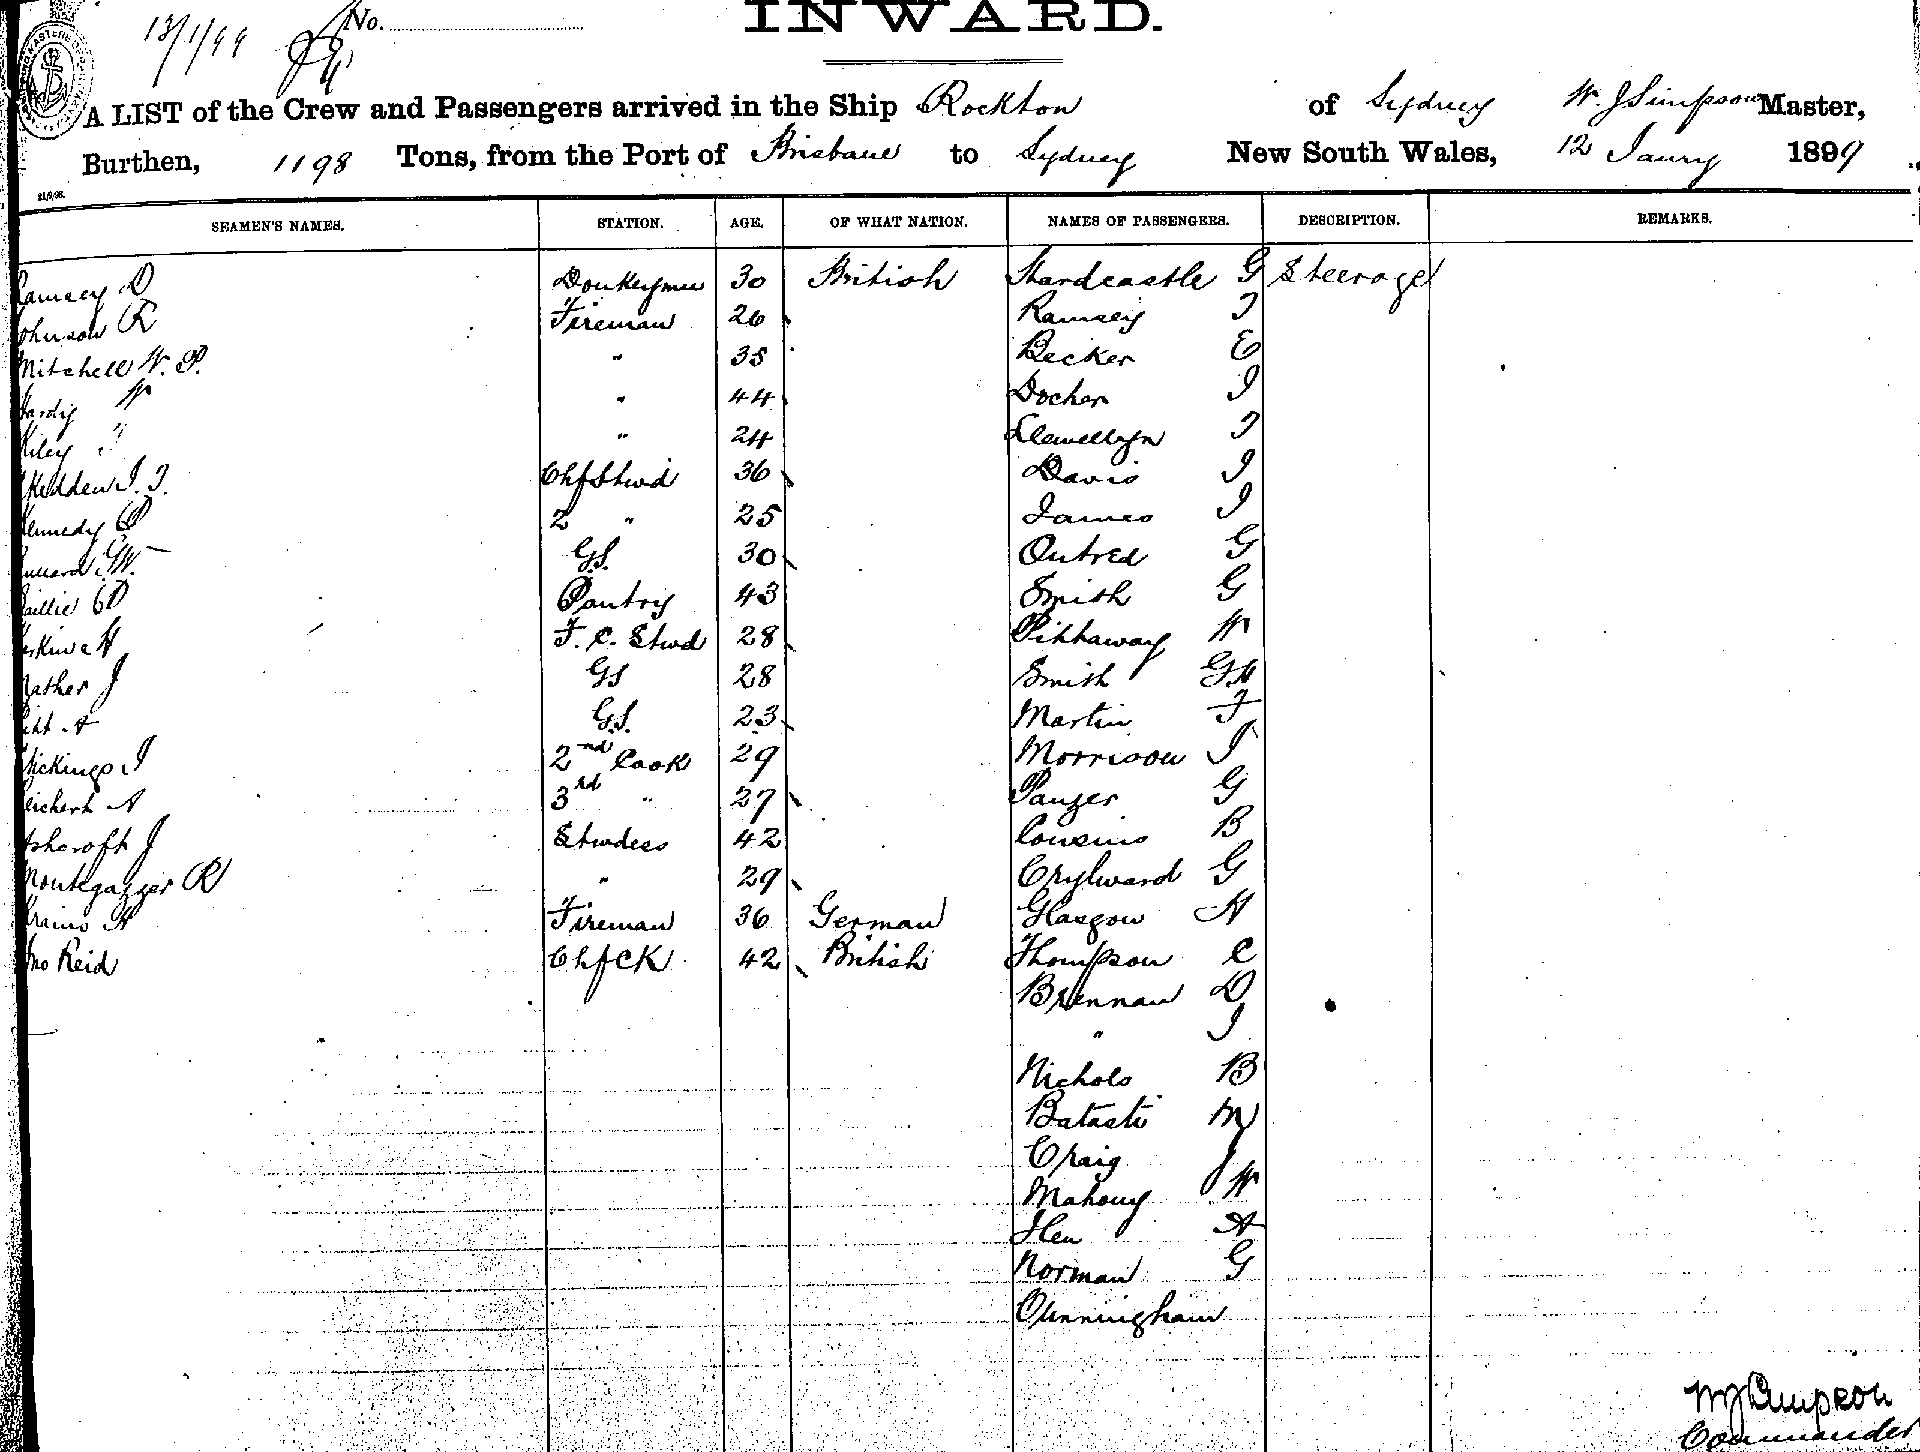 13/1/99 No.
INWARD.
A LIST of the Crew and Passengers arrived in the Ship Rockton of Sydney W. J Simpson Master,
Burthen, 1198 Tons, from the Port of Brisbane to Sydney New South Wales, 12 Janry 1899
21/9/98.
SEAMEN'S NAMES. STATION. AGE. OF WHAT NATION. NAMES OF PASSENGERS. DESCRIPTION. REMARKS.
Ramsey D Donkeyman 30 British Hardcastle G Steerage
Johnson R Fireman 26 Ramsey J
Mitchell W. P. " 35 Becker E
Hardig W " 44 Docher J
Riley J " 24 Llewellyn J
Hedden J. J. Chf Stwd 36 Davis J
Kennedy P 2 " 25 James J
G.W. G.S. 30 Outred G
Baillie C D Pantry 43 Smith G
Erskine H F. C. Stwd 28 Pittaway W
J GS 28 Smith G H
A G.S. 23 Martin F
J 2nd Cook 29 Morrison J
Reichert A 3rd " 27 Panzer G
Ashcroft J Stwdess 42 Cousins B
Montegazzer R " 29 Crylward G
H Fireman 36 German Glasgow H
Jno Reid Chf CK 42 British Thompson C
Brennan D
" J
Nichols B
Batasti M
Craig J
Mahony W
Hen A
Norman G
Cunningham
W J Simpson
Commander